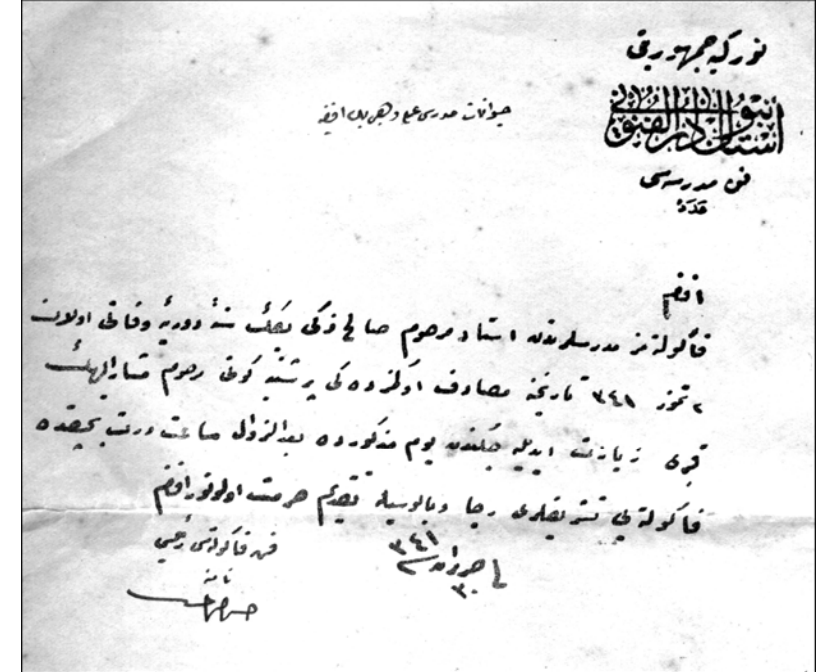 توركيه جمهوريتى
استانبول دار الفنونى
فن مدرسه سى
عدد
حيوانات مدرسى على وهبى بك افندى يه
افندم
فاكولته مز مدرسلرندن استاد مرحوم صالح ذكى بكك سنۀ دوريۀ وفاتى اولان
٢ تموز ٣٤١ تاريخنه مصادف اوكمزده كى پرشنبه كونى مرحوم مشار اليهك
قبرى زيارت ايديله جكندن يوم مذكورده بعد الزوال ساعت درت بچقده
فاكولته يى تشريفلرى رجا وبالوسيله تقديم حرمت اولونور افندم
فى ٣٠ حزيران ٣٤١
فن فاكولته سى رئيسى
نامنه